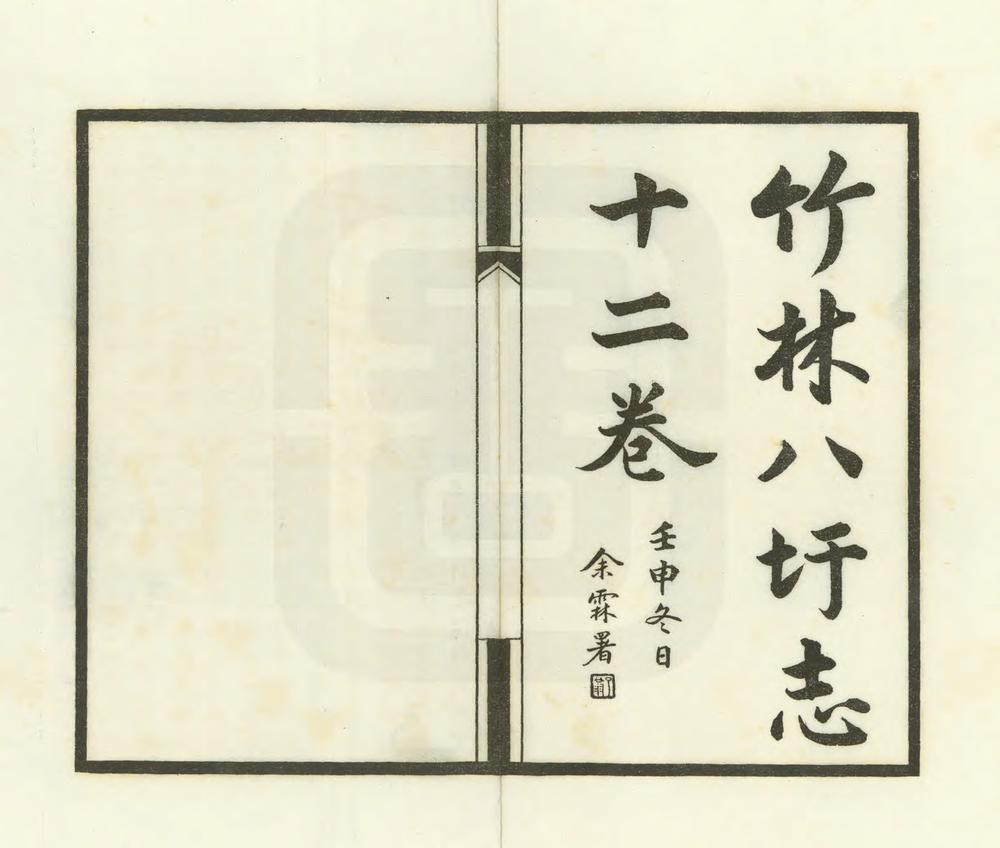 竹林八圩志
十二卷
壬申冬日
余霖署